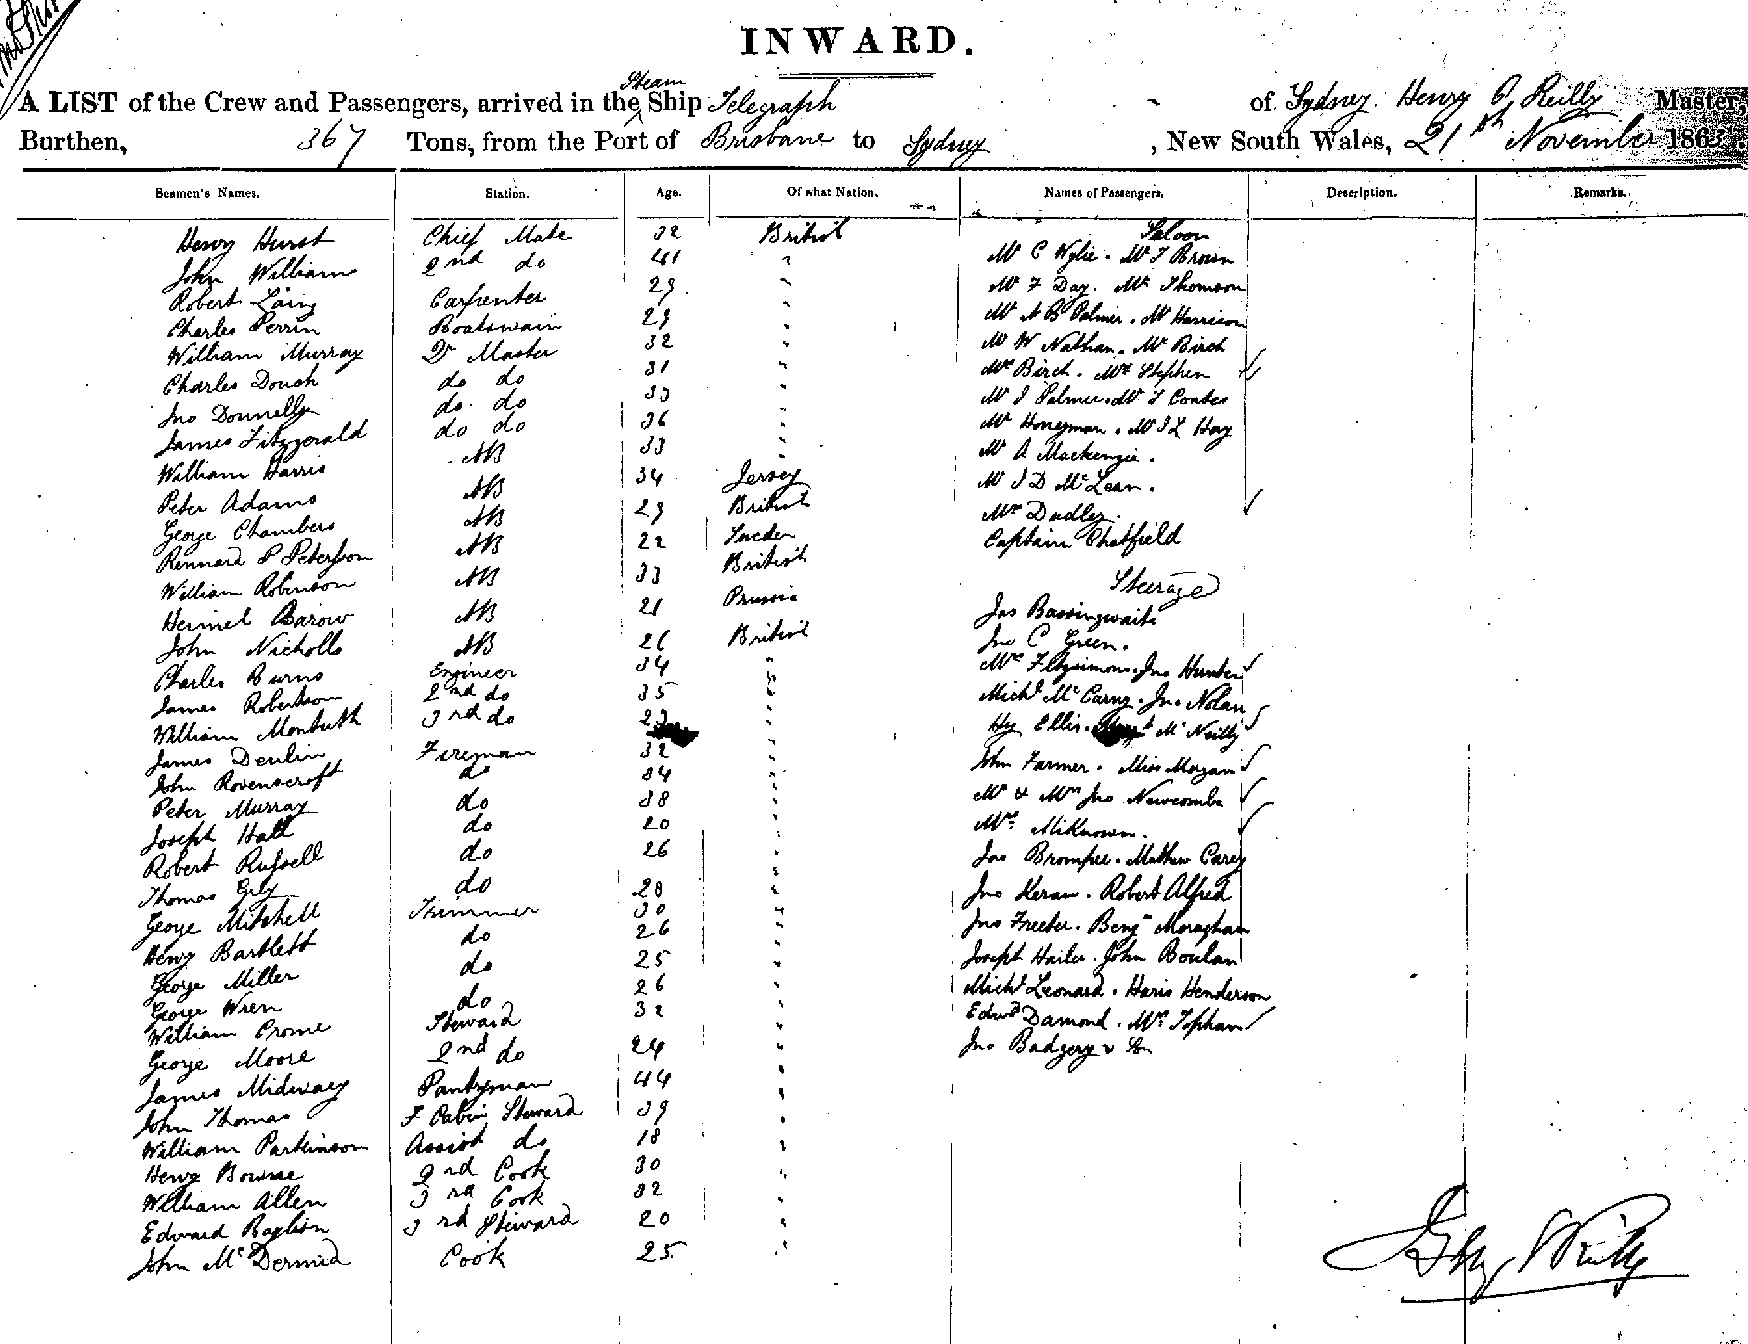 INWARD.
A LIST of the Crew and Passengers, arrived in the Steam Ship Telegraph of Sydney. Henry O'Reilly Master,
Burthen, 367 Tons, from the Port of Brisbane to Sydney, New South Wales, 21st November 186
Seamen's Names. Station. Age. Of what Nation. Names of Passengers. Description. Remarks.
Saloon
Henry Hurst Chief Mate 32 British Mr C Wylie. Mr J Brown
John William 2nd do 41 " Mr F Day. Mr Thomson
Robert Laing Carpenter 29 " Mr A B Palmer. Mr Harrison
Charles Perrin Boatswain 29 " Mr W Nathan. Mr Birch
William Murray Qr Master 32 " Mrs Birch. Mr Stephen
Charles Douch do do 31 " Mr J Palmer. Mr J Coates
Jno Donnelly do do 33 " Mr Honeyman. Mr J L Hay
James Fitzgerald do do 36 " Mr A Mackenzie.
William Harris AB 33 " Mr J D McLean.
Peter Adams AB 34 Jersey Mr Dudley.
George Chambers AB 29 British Captain Chatfield
Rennard P Peterson AB 22 Sweden
William Robinson AB 33 British Steerage
Heinrel Barow AB 21 Prussia Jas Bassingwaite
John Nicholls AB 26 British Jno C Green.
Charles Burns Engineer 34 " Mrs Fitzsimons. Jno Hunter
James Robertson 2nd do 35 " Michl McCarny. Jno Nolan
William Monteith 3rd do " Hy Ellis. McNeilly
James Devlin Fireman 32 " John Farmer. Miss Morgan
John Rovenscroft do 34 " Mr & Mrs Jno Newcombe
Peter Murray do 38 " Mrs
Joseph Hall do 20 " Jno Mathew Carey
Robert Russell do 26 " Jno Keran. Robert Alfred
Thomas do 28 " Jno Freeter. Benjn Moraghan
George Mitchell Trimmer 30 " Joseph Hailer. John Boulan
Henry Bartlett do 26 " Michl Leonard. Haris Henderson
George Miller do 25 " Edwd Damond. Mrs Topham
George Wren do 26 " Jno Badgery & Co
William Crome Steward 32 "
George Moore 2nd do 24 "
James Midway Pantryman 44 "
John Thomas F Cabin Steward 39 "
William Parkinson Assist do 18 "
Henry Bourne 2nd Cook 30 "
William Allen 3rd Cook 32 "
Edward 3rd Steward 20 "
John McDermid Cook 25 "